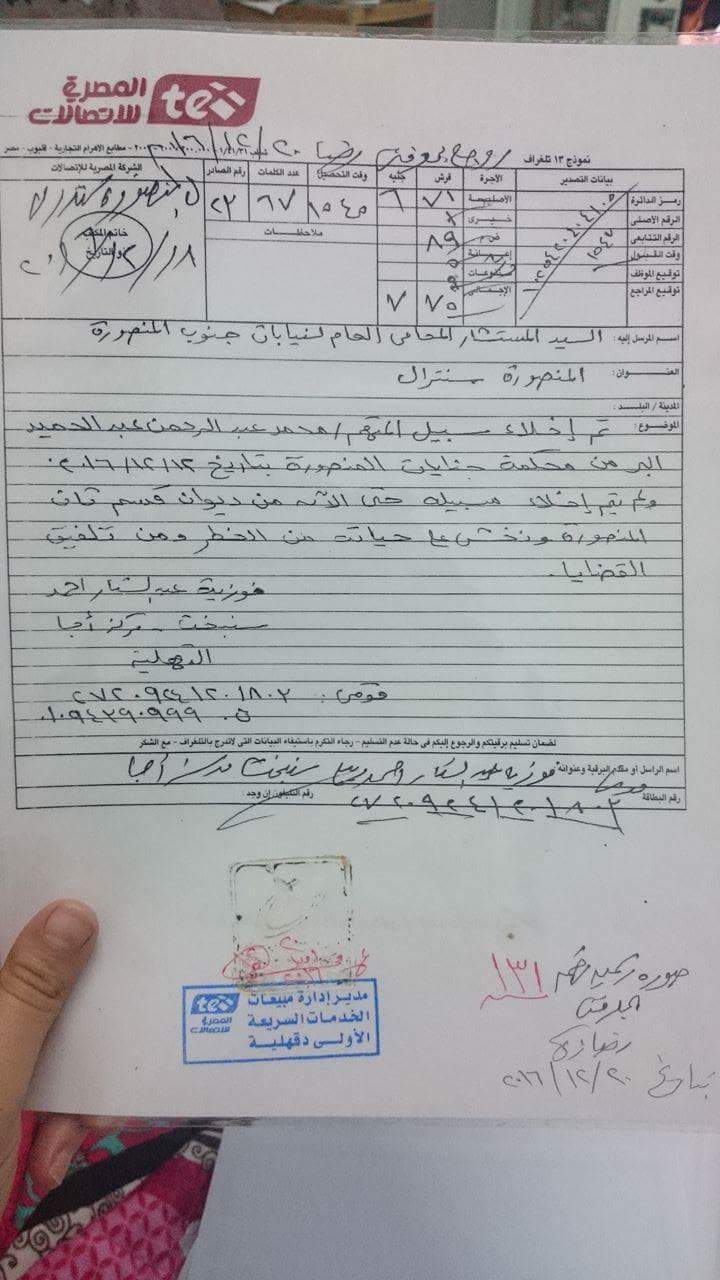 المصرية
للاتصالات
te
نموذج ١٣ تلغراف
مطابع الاهرام التجارية - قليوب - مصر
بيانات التصدير
الأجرة
قرش
جنيه
وقت التحصيل
عدد الكلمات
رقم الصادر
الشركة المصرية للإتصالات
رمز الدائرة
الأصلية
٧١
٦
١٥٤٥
٦٧
٢٣
الرقم الأصلى
ملاحظات
خاتم المكتب
والتاريخ
الرقم التتابعى
٨٩
وقت القبول
١٥٤٧
توقيع الموظف
توقيع المراجع
الإجمالى
٧٥
٧
اسم المرسل إليه : السيد المستشار المحامى العام لنيابات جنوب المنصورة
العنـــوان : المنصورة سنترال
المدينة / البلد :
الموضوع : تم إخلاء سبيل المتهم / محمد عبد الرحمن عبد الحميد
البر من محكمة جنايات المنصورة بتاريخ ٢٠١٦/١٢/١٢
ولم يتم إخلاء سبيله حتى الآن من ديوان قسم ثان
المنصورة ونخشى على حياته من الخطر ومن تلفيق
القضايا.
فوزية عبد الستار احمد
سنبخت - مركز أجا
الدقهلية
قومى : ٢٧٢٠٩٢٤١٢٠١٨٠٢
ت ٠١٠٩٤٣٩٠٩٩٩
لضمان تسليم برقيتكم والرجوع إليكم فى حالة عدم التسليم - رجاء التكرم باستيفاء البيانات التى لاتدرج بالتلغراف - مع الشكر
اسم الراسل أو مقدم البرقية وعنوانه : فوزية عبد الستار احمد سنبخت مركز أجا
رقم البطاقة ٢٧٢٠٩٢٤١٢٠١٨٠٢
رقم التليفون إن وجد :
te
المصرية
للاتصالات
مدير إدارة مبيعات
الخدمات السريعة
الأولى دقهلية
صورة رسمية رقم ١٣١
بتاريخ ٢٠١٦/١٢/٢٠